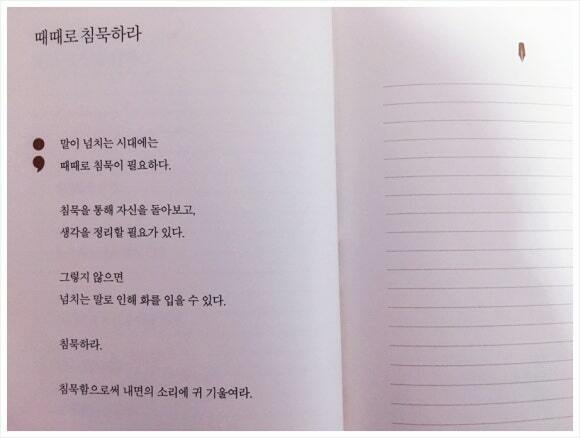 때때로 침묵하라
말이 넘치는 시대에는
때때로 침묵이 필요하다.
침묵을 통해 자신을 돌아보고,
생각을 정리할 필요가 있다.
그렇지 않으면
넘치는 말로 인해 화를 입을 수 있다.
침묵하라.
침묵함으로써 내면의 소리에 귀 기울여라.